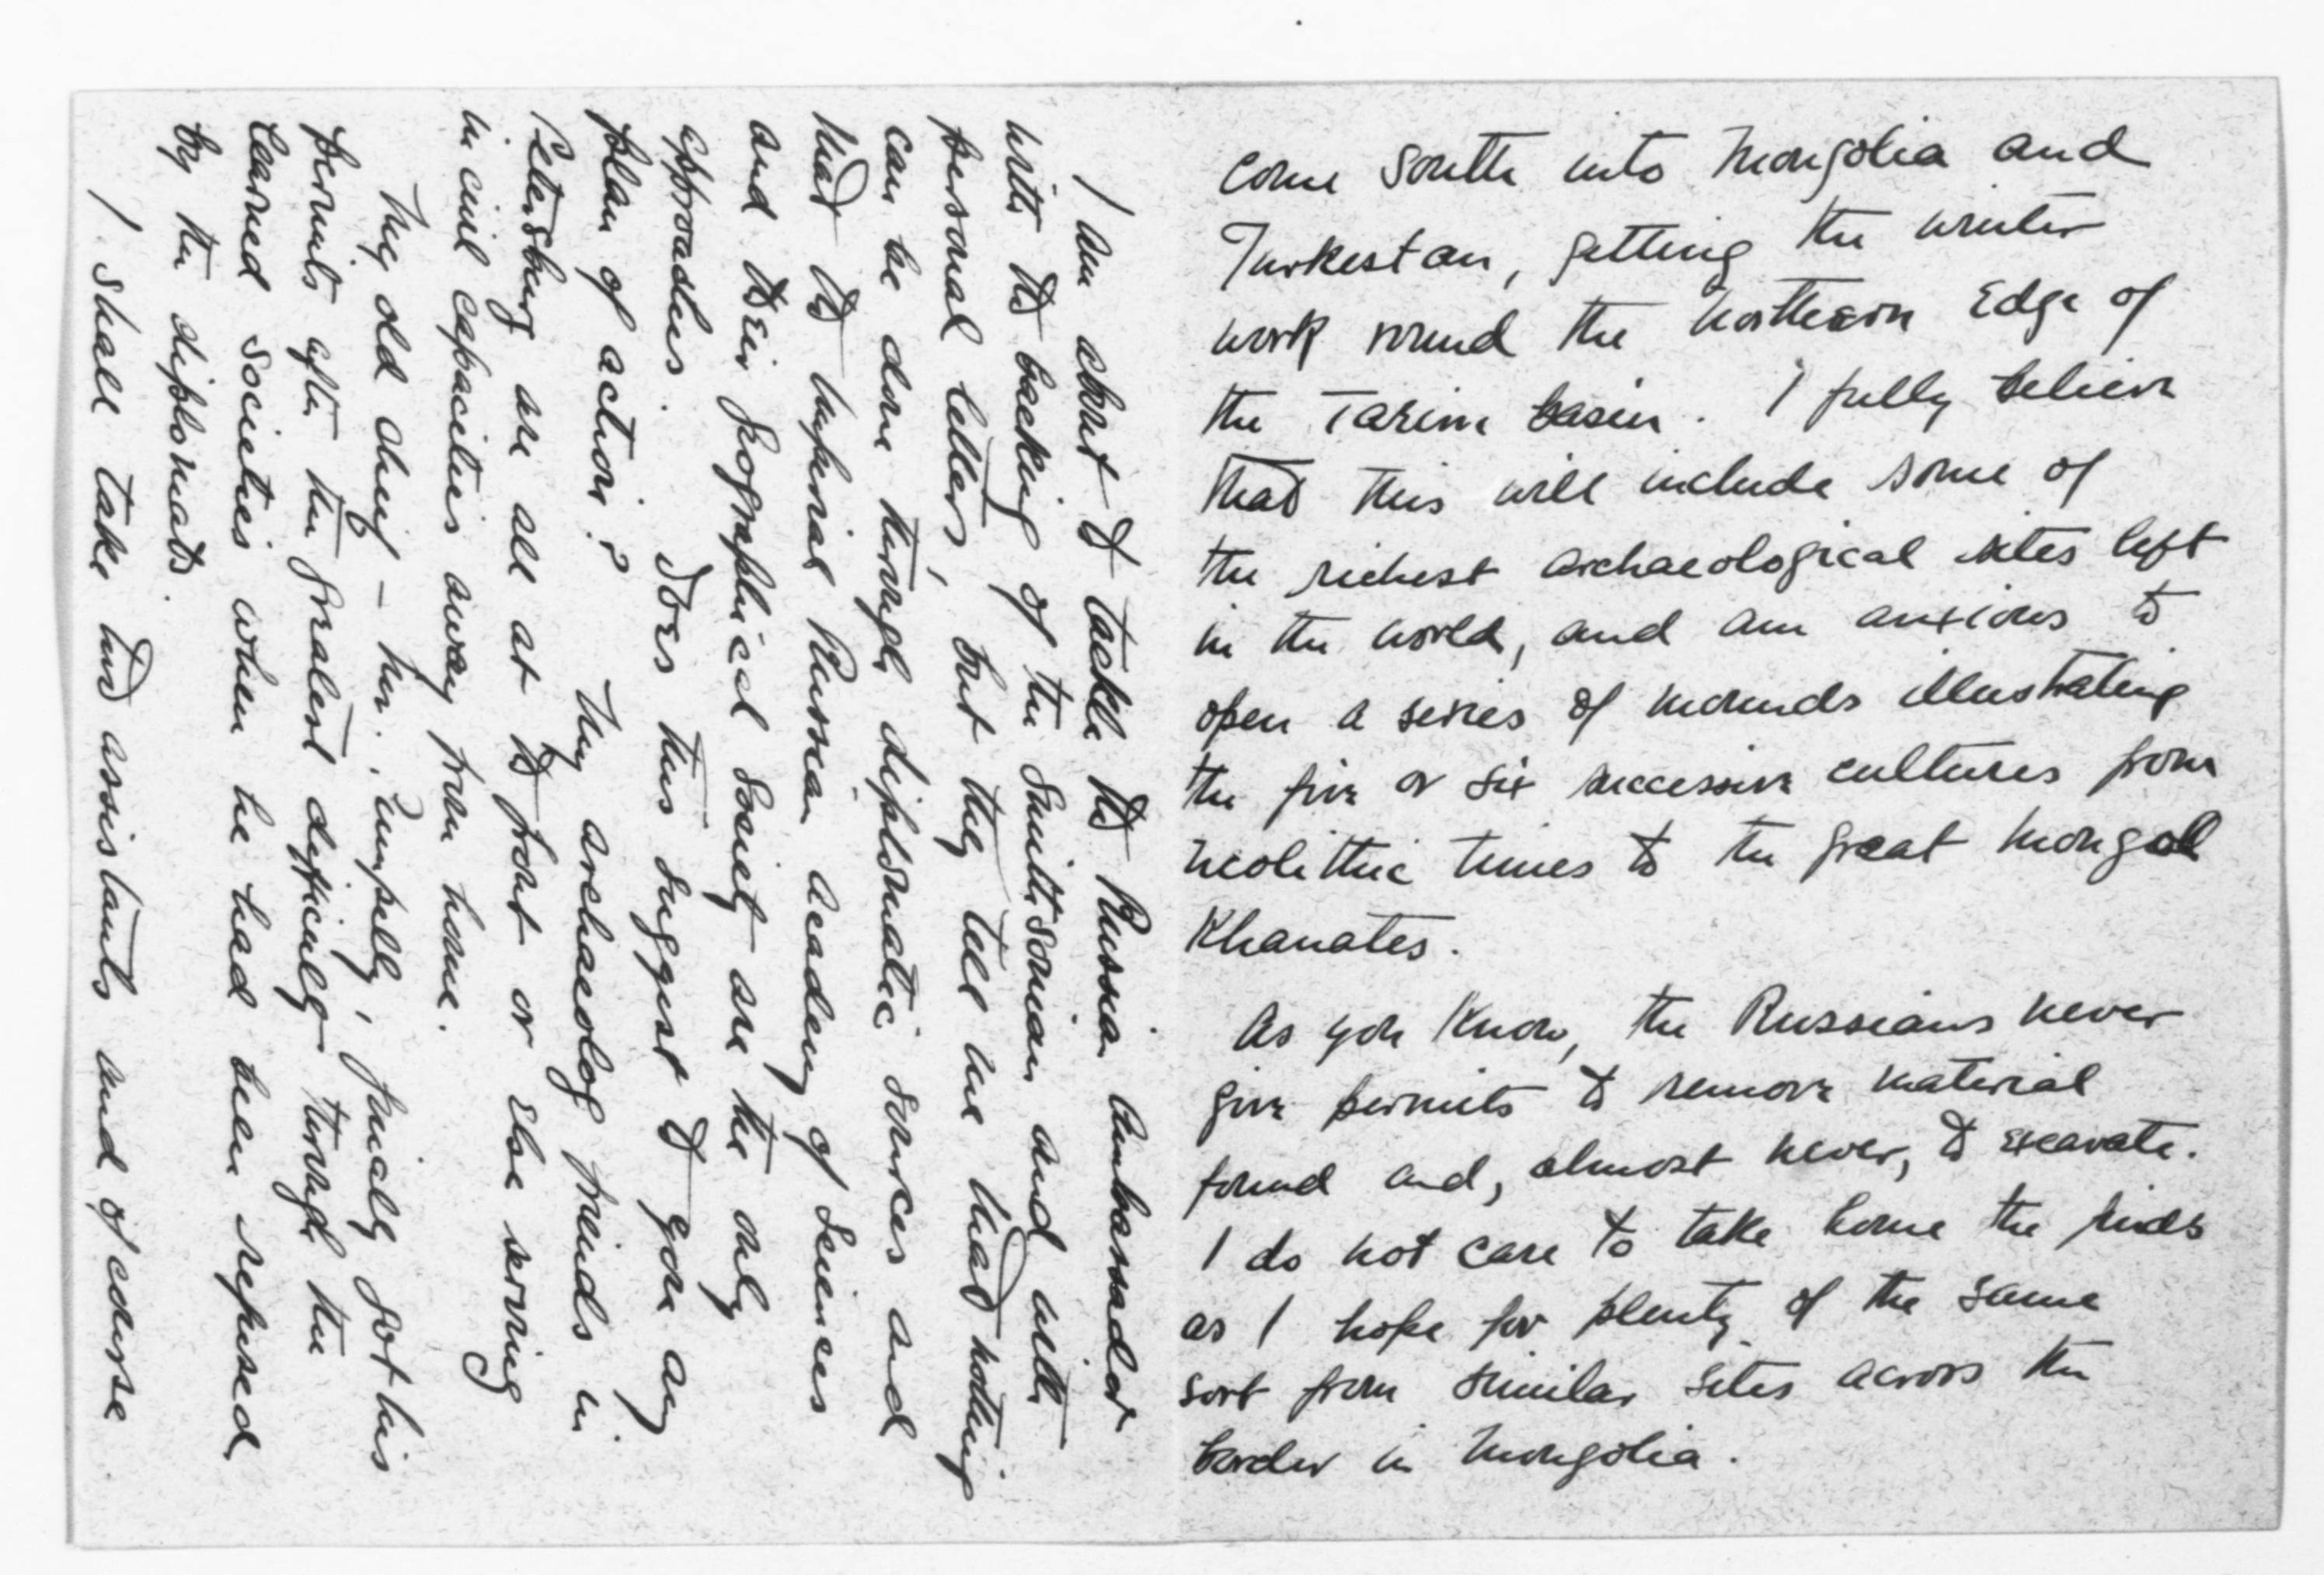 come South into Mongolia and
Turkestan, getting the winter
work round the Northern Edge of
the Tarim basin. I fully believe
that this will include some of
the richest archaeological sites left
in the world, and am anxious to
open a series of mounds illustrating
the five or six successive cultures from
neolithic times to the great Mongol
Khanates.
As you know, the Russians never
give permits to remove material
found and, almost never, to excavate.
I do not care to take home the finds
as I hope for plenty of the same
sort from similar sites across the
border in Mongolia.
I am about to tackle the Russian Ambassador
with the backing of the Smithsonian and with
personal letters, but they tell me that nothing
can be done through diplomatic sources and
that the Imperial Russian Academy of Sciences
and their Geographical Society are the only
approaches. Does this suggest to you any
plan of action? My archaeology friends in
Petersburg are all at the front or else serving
in civil capacities away from home.
My old chief – Mr. Pumpelly, finally got his
permits after the greatest difficulty through the
learned societies when he had been refused
by the diplomats.
I shall take two assistants and of course